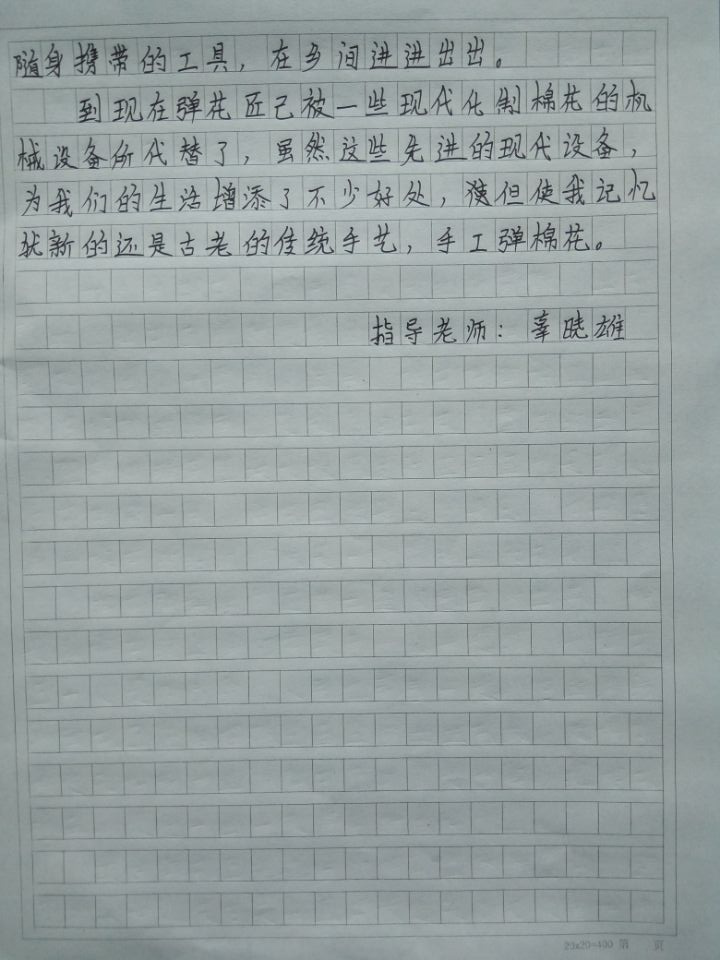 随身携带的工具，在乡间进进出出。
到现在弹花匠己被一些现代化制棉花的机
械设备所代替了，虽然这些先进的现代设备，
为我们的生活增添了不少好处，但使我记忆
犹新的还是古老的传统手艺，手工弹棉花。
指导老师：辜晓雄
20x20=400 第 页